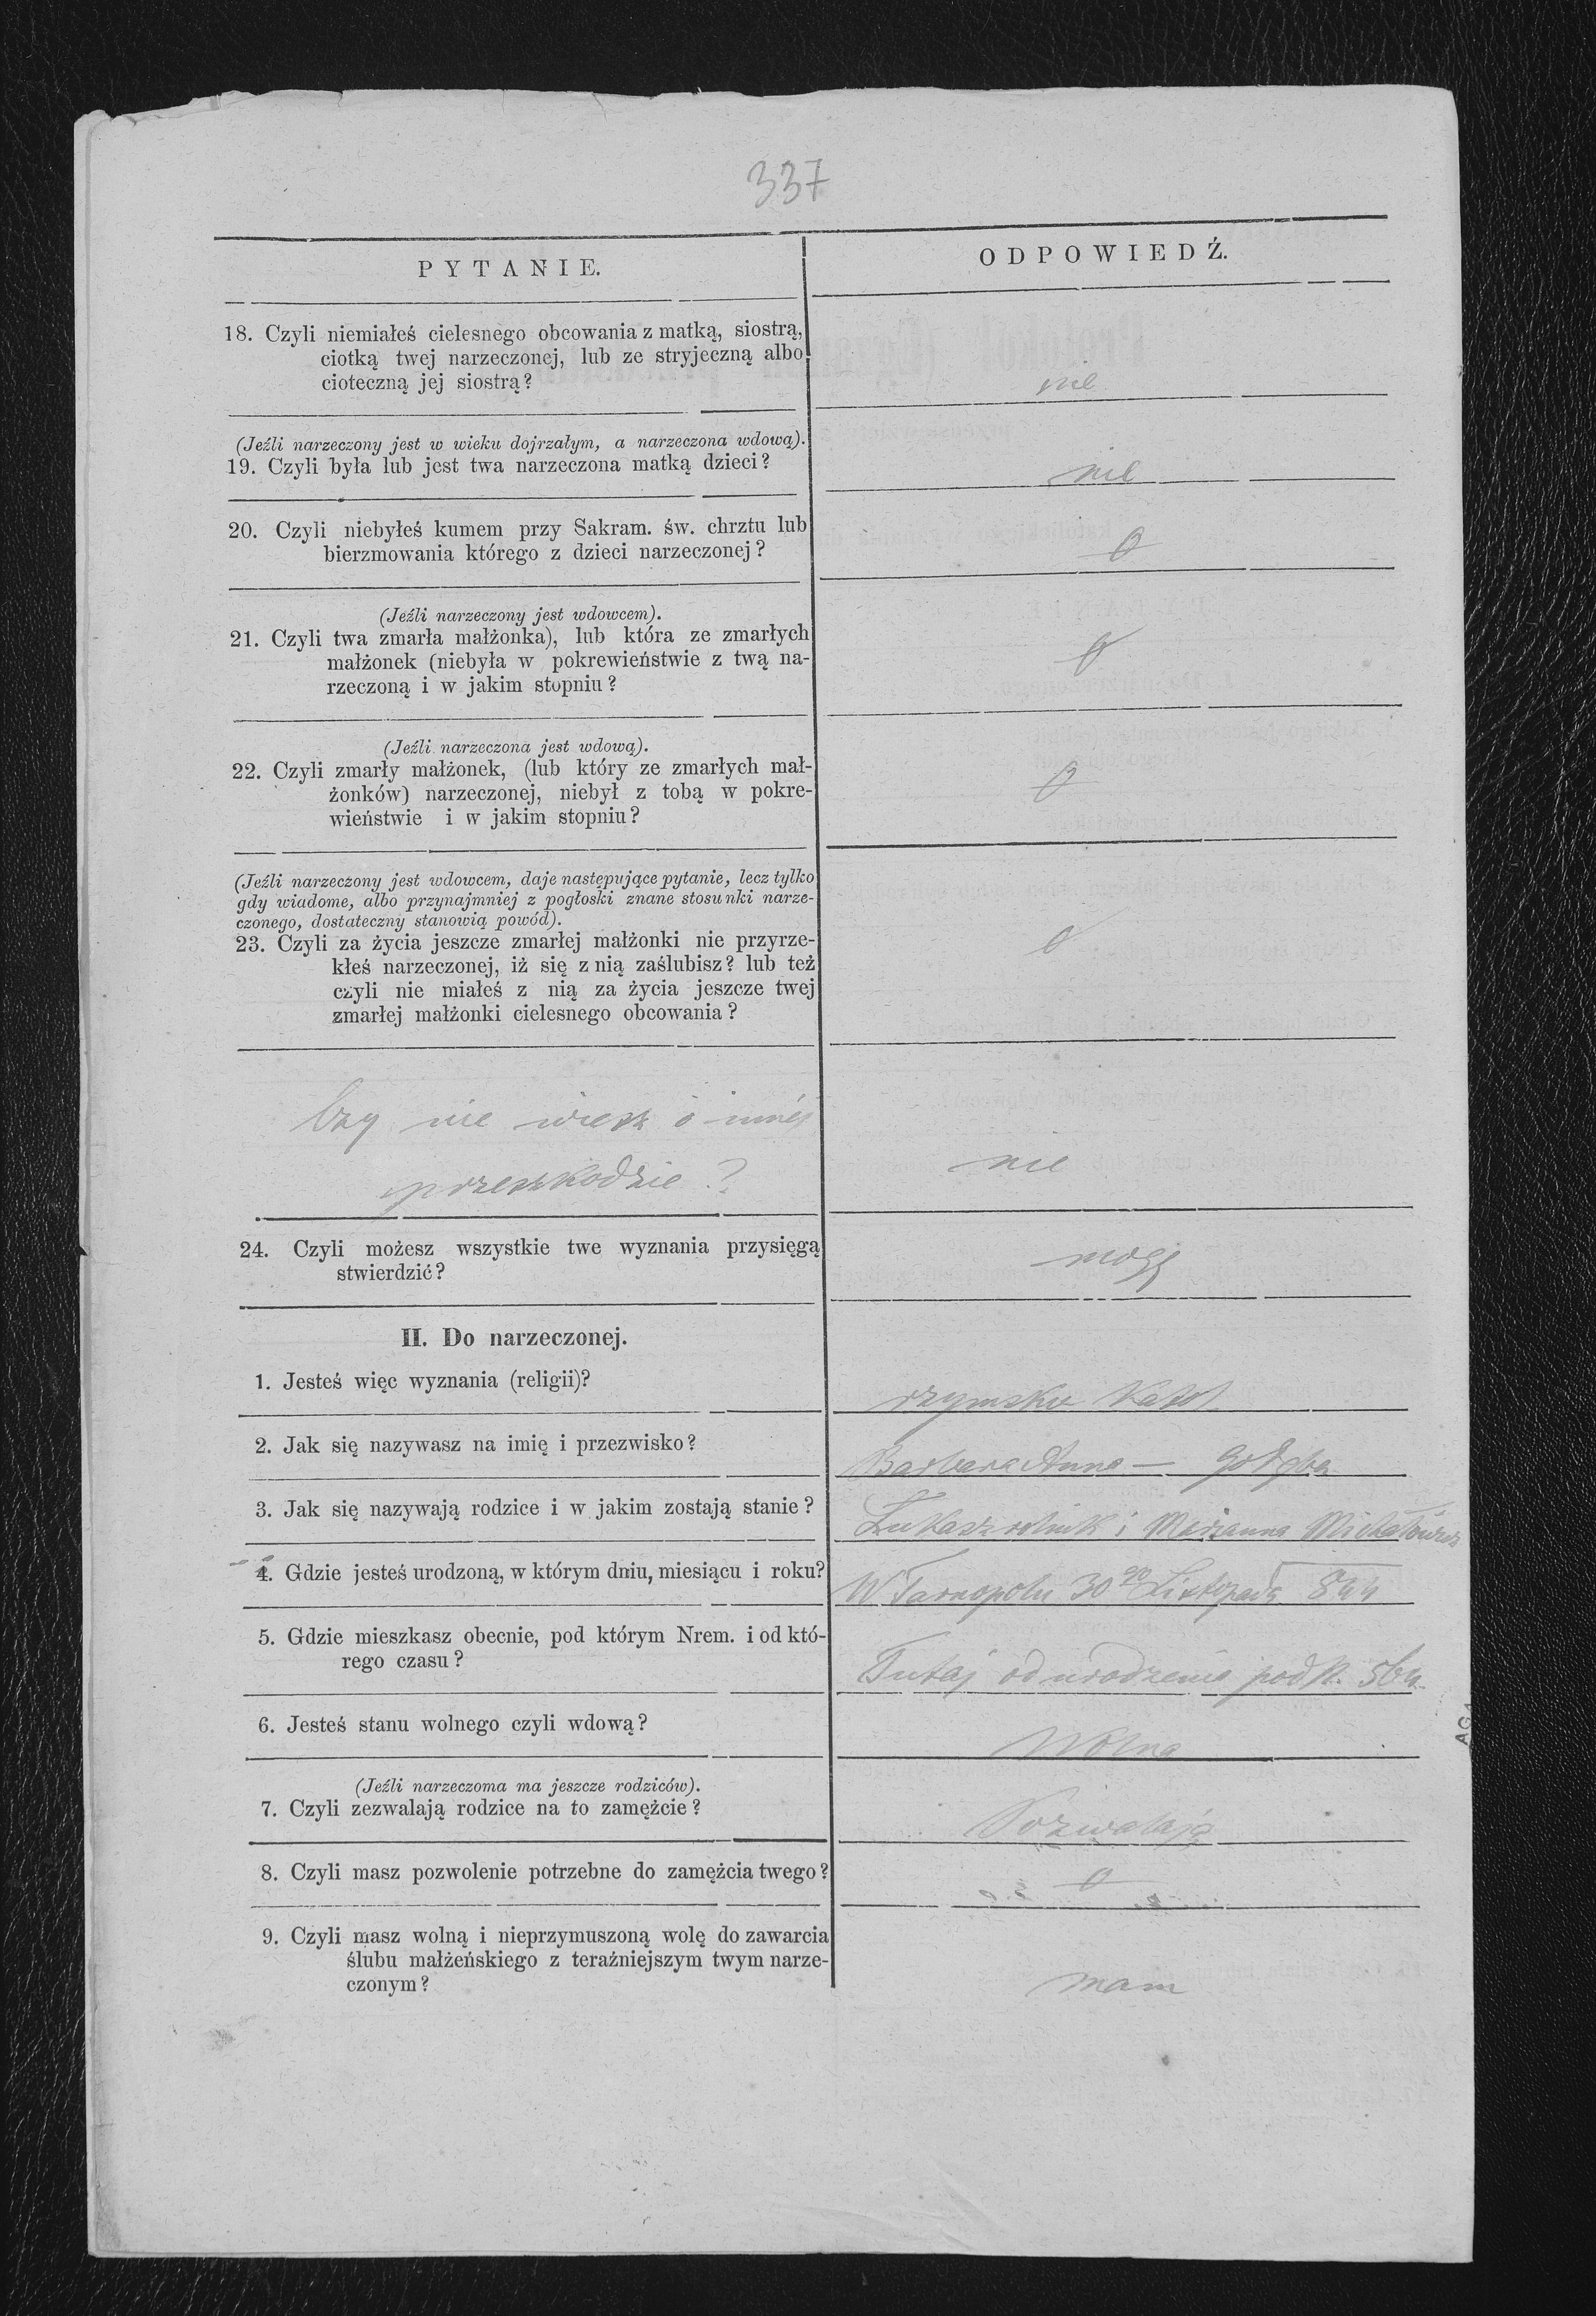 337
PYTANIE.
ODPOWIEDŹ.
18. Czyli niemiałeś cielesnego obcowania z matką, siostrą,
ciotką twej narzeczonej, lub ze stryjeczną albo
cioteczną jej siostrą?
nie
(Jeźli narzeczony jest w wieku dojrzałym, a narzeczona wdową).
19. Czyli była lub jest twa narzeczona matką dzieci?
nie
20. Czyli niebyłeś kumem przy Sakram. św. chrztu lub
bierzmowania którego z dzieci narzeczonej?
0
(Jeźli narzeczony jest wdowcem).
21. Czyli twa zmarła małżonka), lub która ze zmarłych
małżonek (niebyła w pokrewieństwie z twą na-
rzeczoną i w jakim stopniu?
0
(Jeźli narzeczona jest wdową).
22. Czyli zmarły małżonek, (lub który ze zmarłych mał-
żonków) narzeczonej, niebył z tobą w pokre-
wieństwie i w jakim stopniu?
0
(Jeźli narzeczony jest wdowcem, daje następujące pytanie, lecz tylko
gdy wiadome, albo przynajmniej z pogłoski znane stosunki narze-
czonego, dostateczny stanowią powód).
23. Czyli za życia jeszcze zmarłej małżonki nie przyrze-
kłeś narzeczonej, iż się z nią zaślubisz? lub też
czyli nie miałeś z nią za życia jeszcze twej
zmarłej małżonki cielesnego obcowania?
0
Czy nie wiesz o innéj
przeszkodzie?
nie
24. Czyli możesz wszystkie twe wyznania przysięgą
stwierdzić?
mogę
II. Do narzeczonej.
1. Jesteś więc wyznania (religii)?
rzymsko katol.
2. Jak się nazywasz na imię i przezwisko?
Barbara Anna — Gołęba
3. Jak się nazywają rodzice i w jakim zostają stanie?
Łukasz rolnik i Maryanna
4. Gdzie jesteś urodzoną, w którym dniu, miesiącu i roku?
W Tarnopolu 30go Listopada 844
5. Gdzie mieszkasz obecnie, pod którym Nrem. i od któ-
rego czasu?
Tutaj od urodzenia pod N. 564
6. Jesteś stanu wolnego czyli wdową?
Wolna
(Jeźli narzeczoma ma jeszcze rodziców).
7. Czyli zezwalają rodzice na to zamęźcie?
8. Czyli masz pozwolenie potrzebne do zamęźcia twego?
0
9. Czyli masz wolną i nieprzymuszoną wolę do zawarcia
ślubu małżeńskiego z teraźniejszym twym narze-
czonym?
mam